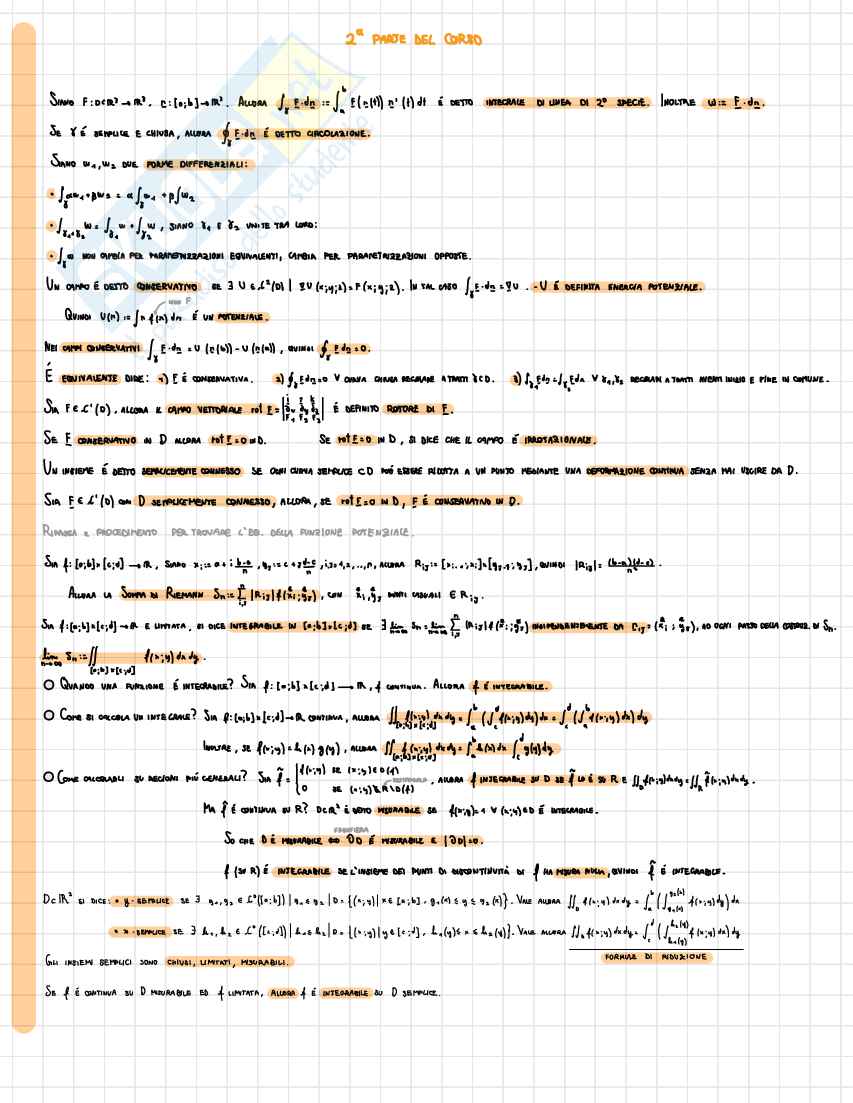 2ª PARTE DEL CORSO
SIANO F: D⊂ℝ³ → ℝ³, r: [a;b] → ℝ³. ALLORA ∫_γ F·dr := ∫_a^b F(r(t)) r'(t) dt É DETTO INTEGRALE DI LINEA DI 2° SPECIE. INOLTRE ω := F·dr.
SE γ É SEMPLICE E CHIUSA, ALLORA ∮_γ F·dr É DETTO CIRCOLAZIONE.
SIANO ω₁, ω₂ DUE FORME DIFFERENZIALI:
• ∫_γ αω₁+βω₂ = α∫_γ ω₁ + β∫ω₂
• ∫_γ₁+γ₂ ω = ∫_γ₁ ω + ∫_γ₂ ω, SIANO γ₁ E γ₂ UNITE TRA LORO:
• ∫_γ ω NON CAMBIA PER PARAMETRIZZAZIONI EQUIVALENTI, CAMBIA PER PARAMETRIZZAZIONI OPPOSTE.
UN CAMPO É DETTO CONSERVATIVO SE ∃ U ∈ (D) | ∇U(x;y;z) = F(x;y;z). IN TAL CASO ∫_γ F·dr = ∇U. -U É DEFINITA ENERGIA POTENZIALE.
QUINDI U(r) = ∫ r f(r) dr É UN POTENZIALE.
NEI CAMPI CONSERVATIVI ∫_γ F·dr = U(r(b)) - U(r(a)), QUINDI ∮_γ F dr = 0.
É EQUIVALENTE DIRE: 1) F É CONSERVATIVA. 2) ∮_γ F dr = 0 ∀ CURVA CHIUSA REGOLARE A TRATTI γ⊂D. 3) ∫_γ₁ F dr = ∫_γ₂ F dr ∀ γ₁,γ₂ REGOLARI A TRATTI AVENTI INIZIO E FINE IN COMUNE.
SIA F ∈ C¹(D), ALLORA IL CAMPO VETTORIALE rot F = |i j k; ∂x ∂y ∂z; F₁ F₂ F₃| É DEFINITO ROTORE DI F.
SE F CONSERVATIVO IN D ALLORA rot F = 0 IN D. SE rot F = 0 IN D, SI DICE CHE IL CAMPO É IRROTAZIONALE.
UN INSIEME É DETTO SEMPLICEMENTE CONNESSO SE OGNI CURVA SEMPLICE ⊂ D PUÓ ESSERE RIDOTTA A UN PUNTO MEDIANTE UNA DEFORMAZIONE CONTINUA SENZA MAI USCIRE DA D.
SIA F ∈ C¹(D) CON D SEMPLICEMENTE CONNESSO, ALLORA, SE rot F = 0 IN D, F É CONSERVATIVO IN D.
PROCEDIMENTO PER TROVARE L'EQ. DELLA FUNZIONE POTENZIALE.
SIA f: [a;b]×[c;d] → ℝ, SIANO xᵢ := a + i (b-a)/n, yⱼ := c + j (d-c)/n, i,j = 1,2,..,n, ALLORA Rᵢⱼ := [xᵢ₋₁;xᵢ]×[yⱼ₋₁;yⱼ], QUINDI |Rᵢⱼ| = (b-a)(d-c)/n².
ALLORA LA SOMMA DI RIEMANN Sₙ := Σ |Rᵢⱼ| f(xᵢ*;yⱼ*), CON xᵢ*, yⱼ* PUNTI CASUALI ∈ Rᵢⱼ.
SIA f: [a;b]×[c;d] → ℝ E LIMITATA, SI DICE INTEGRABILE IN [a;b]×[c;d] SE ∃ lim Sₙ = lim Σ |Rᵢⱼ| f(xᵢ*;yⱼ*) INDIPENDENTEMENTE DA Cᵢⱼ = (xᵢ*;yⱼ*), AD OGNI PASSO DELLA COSTRUZ. DI Sₙ.
lim_{n→∞} Sₙ := ∬_{[a;b]×[c;d]} f(x;y) dx dy.
○ QUANDO UNA FUNZIONE É INTEGRABILE? SIA f: [a;b]×[c;d] → ℝ, f CONTINUA. ALLORA f É INTEGRABILE.
○ COME SI CALCOLA UN INTEGRALE? SIA f: [a;b]×[c;d] → ℝ CONTINUA, ALLORA ∬_{[a;b]×[c;d]} f(x;y) dx dy = ∫_a^b (∫_c^d f(x;y) dy) dx = ∫_c^d (∫_a^b f(x;y) dx) dy
INOLTRE, SE f(x;y) = h(x) g(y), ALLORA ∬_{[a;b]×[c;d]} f(x;y) dx dy = ∫_a^b h(x) dx ∫_c^d g(y) dy
○ COME CALCOLARLI SU REGIONI PIÚ GENERALI? SIA f̃ = { f(x;y) SE (x;y) ∈ D(f); 0 SE (x;y) ∈ R\D(f) RETTANGOLO, ALLORA f INTEGRABILE SU D SE f̃ LO É SU R E ∬_D f(x;y) dx dy = ∬_R f̃(x;y) dx dy.
MA f̃ É CONTINUA SU R? D⊂ℝ² É DETTO MISURABILE SE f(x;y) = 1 ∀ (x;y) ∈ D É INTEGRABILE.
SO CHE D É MISURABILE ⟺ ∂D É MISURABILE E |∂D| = 0.
FRONTIERA
f (SU R) É INTEGRABILE SE L'INSIEME DEI PUNTI DI DISCONTINUITÁ DI f HA MISURA NULLA, QUINDI f̃ É INTEGRABILE.
D⊂ℝ² SI DICE: • y-SEMPLICE SE ∃ g₁, g₂ ∈ C⁰([a;b]) | g₁ ≤ g₂ | D = {(x;y) | x ∈ [a;b], g₁(x) ≤ y ≤ g₂(x)}. VALE ALLORA ∬_D f(x;y) dx dy = ∫_a^b (∫_{g₁(x)}^{g₂(x)} f(x;y) dy) dx
• x-SEMPLICE SE ∃ h₁, h₂ ∈ C⁰([c;d]) | h₁ ≤ h₂ | D = {(x;y) | y ∈ [c;d], h₁(y) ≤ x ≤ h₂(y)}. VALE ALLORA ∬_D f(x;y) dx dy = ∫_c^d (∫_{h₁(y)}^{h₂(y)} f(x;y) dx) dy
FORMULE DI RIDUZIONE
GLI INSIEMI SEMPLICI SONO CHIUSI, LIMITATI, MISURABILI.
SE f É CONTINUA SU D MISURABILE ED f LIMITATA, ALLORA f É INTEGRABILE SU D SEMPLICE.